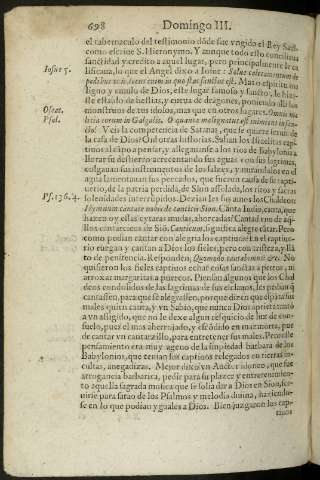 698 Domingo III.
el tabernaculo del testimonio dõde fue vngido el Rey Saul
como escriue S. Hieronymo. Y aunque todo esto
sanctidad y credito a aquel lugar, pero principalmente le
lo que el Angel dixo a Iosue: Solue
Iosue 5.
pedibus tuis, locus enim in quo stas sanctus est. Mas
digno y templo de Dios, este lugar famoso y sancto, le
establo de bestias, y cueua de dragones, poniendo alli los
monstruos de tus idolos, mas que en otros lugares. Omnis
Oseas.
in Galgalis. O quanta malignatus est inimicus in
Psal.
Veis la competencia de Satanas, que se quiere
la casa de Dios? Oid otras historias. Salian los
al cãpo a penar, y allegauanse a los rios de Babylonia
llorar su destierro acrecentando sus aguas con sus lagrimas,
colgauan sus instrumentos de los sauzes, y mirandolos en el
agua lamentauan sus peccados, que fueron causa de su
uerio, de la patria perdida, de Sion assolada, los ritos y sacras
Ps. 136. 4.
solenidades interrūpidos. Dezian les sus amos los Chaldeos
Hymnum cantate nobis de canticis Sion. Canta Indio, canta, que
hazen oy essas cytaras mudas, ahorcadas? Cantad nos de
llos cantarcicos de Siõ. Canticum, significa alegre cãtar. Pero
como podian cantar con alegria los captiuos? En el captiue-
rio ruegan y cantan a Dios los fieles, pero con tristeza, y llã
to de penitencia. Responden, Quomodo cantabimus &c. No
quisieron los fieles captiuos echar cosas sanctas a perros, ni
arrojar margaritas a puercos. Piensan algunos que los Chal
deos condolidos de las lagrimas de sus esclauos, les pedian q̃
cantassen, para que se alegrassen, porque dizen que espãta sus
males quien canta, y vn Sabio, que nunca Dios apriera tanto
a vn afligido, que no le dexe algun resquicio de luz de con-
suelo, pues el mas aherrojado, y escõdido en mazmorra, pue
de cantar vn cantarzillo, para entretener sus males. Pero este
pensamiento era muy ageno de la impiedad barbara de los
Babylonios, que tenian los captiuos relegados en tierras in-
cultas, anegadizas. Mejor dixo vn Auctor que fue
arrogancia barbarica, pedir para su plazer y entretenimien-
to aquella sagrada musica que se solia dar a Dios en Sion, ser-
uirse para farao de los Psalmos y melodia diuina, haziendo-
se en lo que podian yguales a Dios. Bien juzgaron los cap-
tiuos